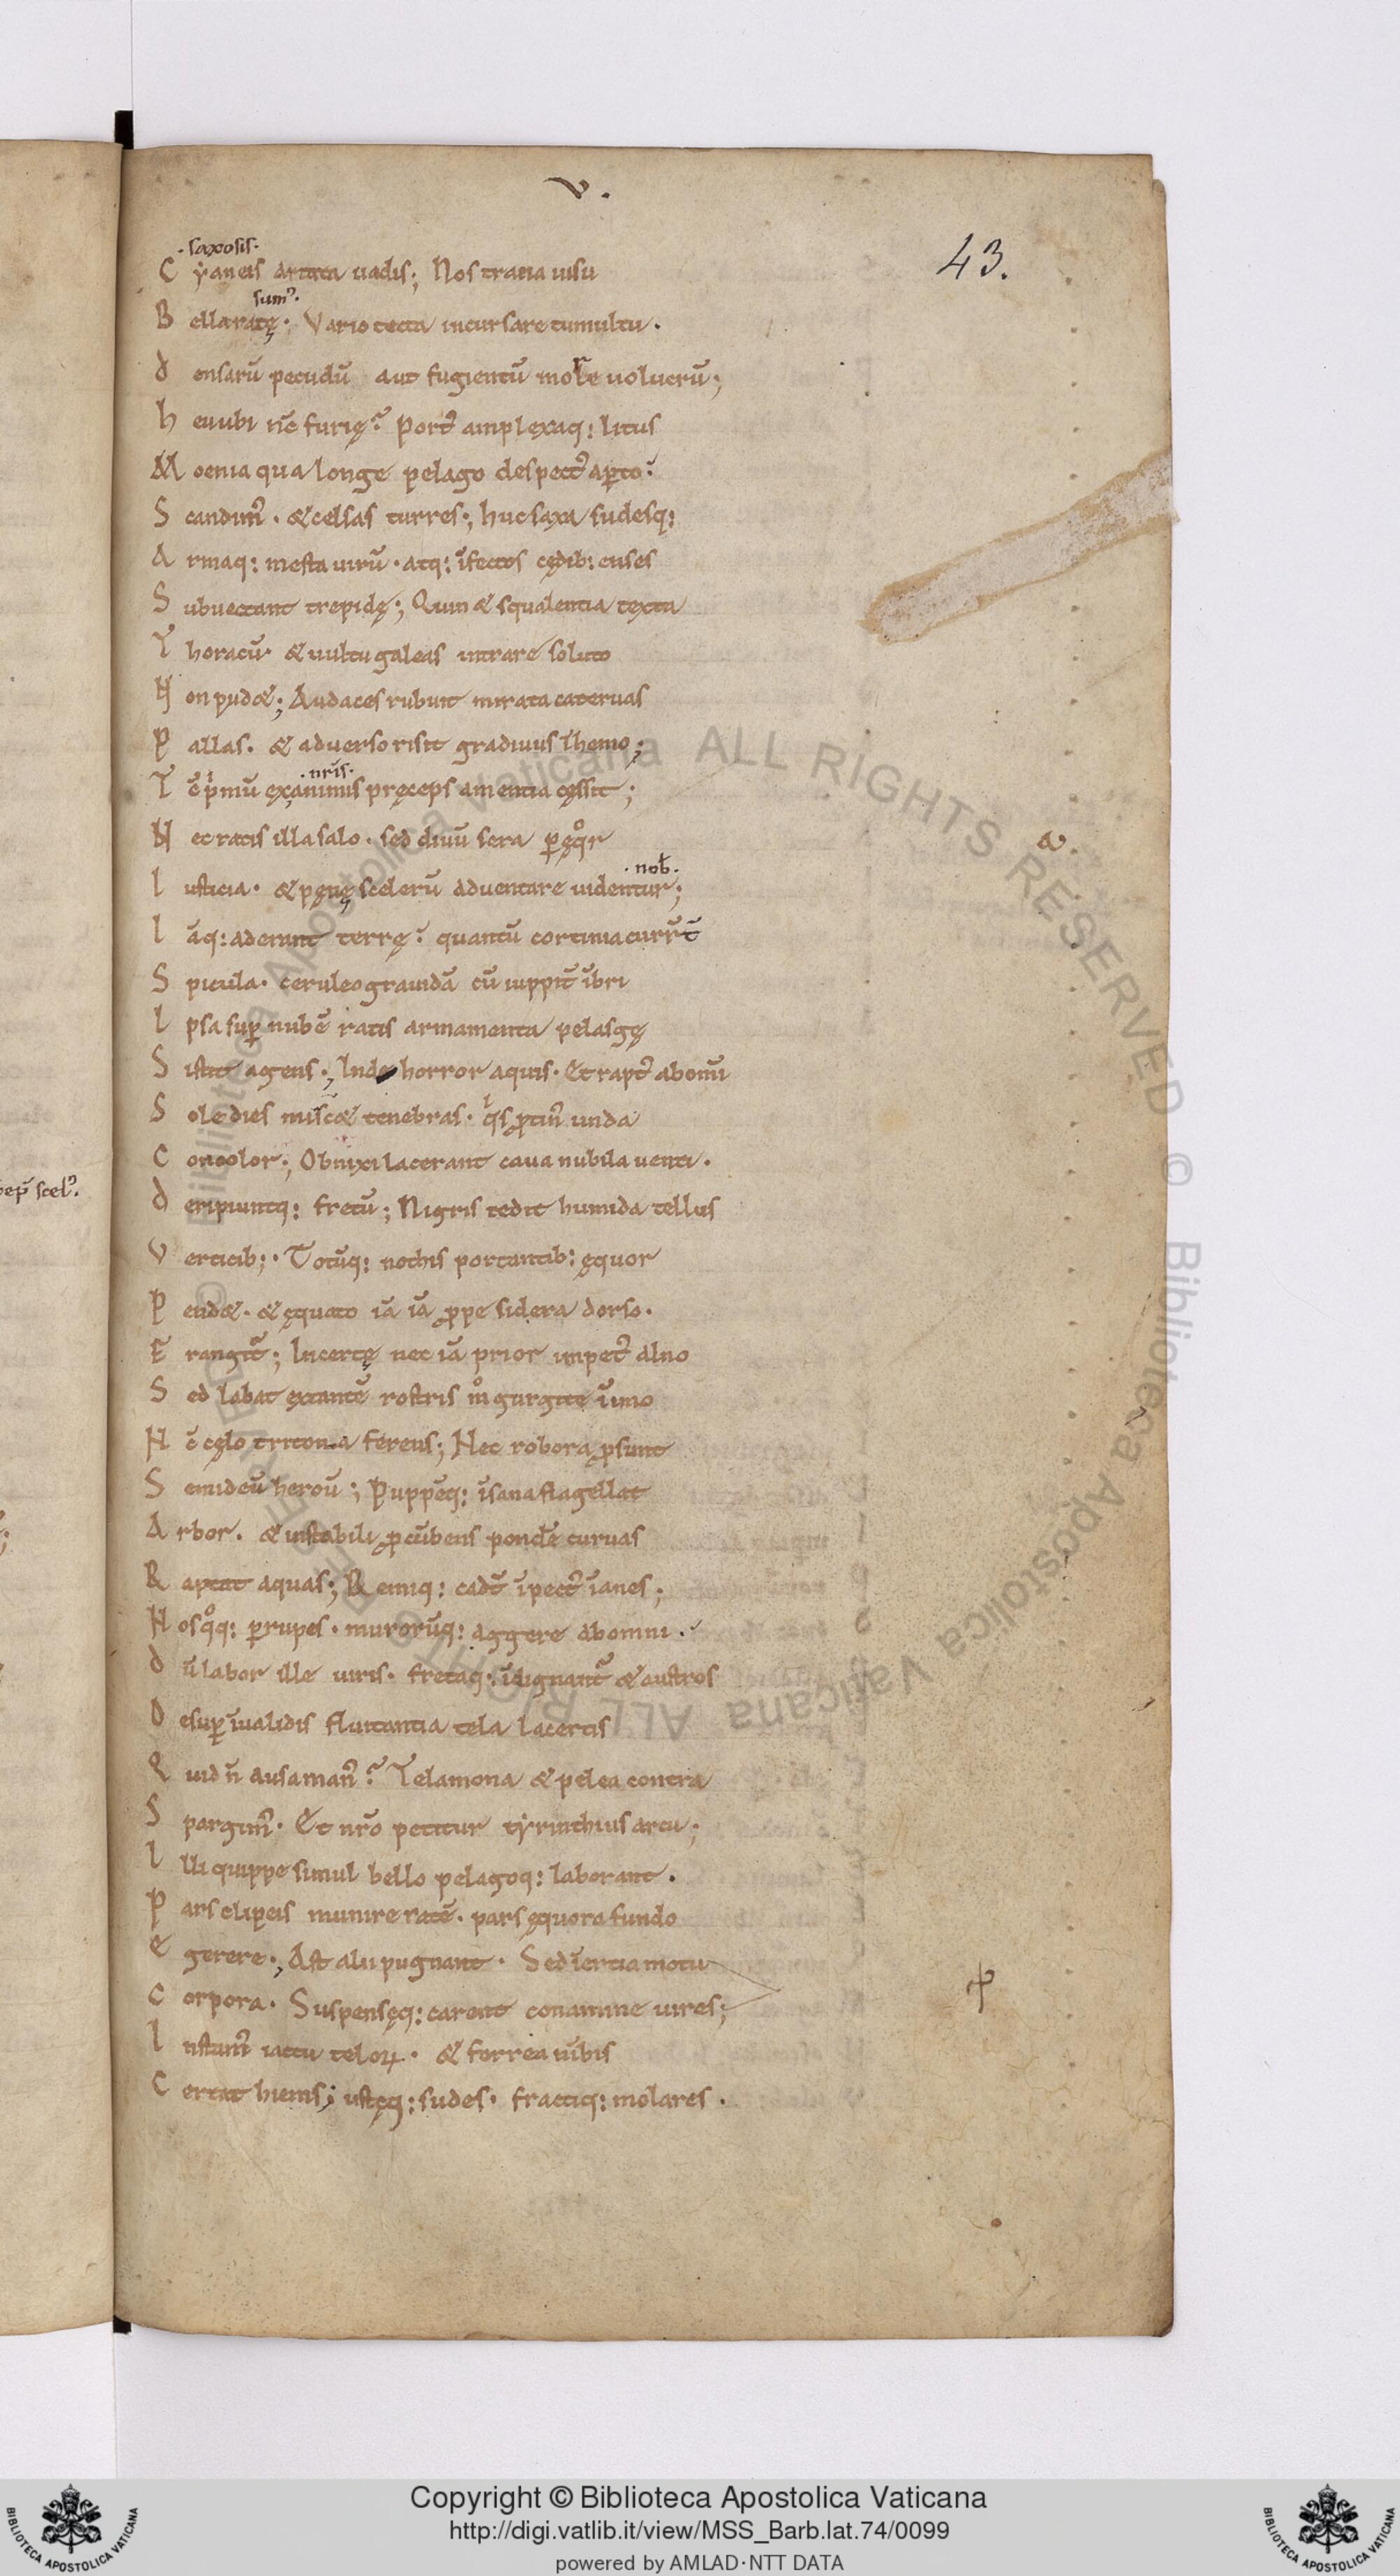 v.
43.
· saxosis ·
C ẏaneis artata uadis; Nos tratia uisu
sum᷒ ·
B ellaratę · Vario tecta incursare tumultu .
d ensarū pecudū aut fugientū more uolucrū;
h eu ubi nc̄ furię? Port᷒ amplexaq: litus
M oenia qua longe pelago despect᷒ apto?
S candim᷒ · & celsas turres ·; huc saxa sudesq:
A rmaq: mesta uirū · atq: īfectos cędib: enses
S ubuectant trepidę; Quin & squalentia texta
T horacū & uultu galeas intrare soluto
N on pud&; Audaces rubuit mirata cateruas
P allas. & aduerso risit gradiuus ı̄hemo;
· nrīs ·
T ē pͥmū exanimis pręceps amentia cęssit;
N ec ratis illa salo · sed diuū sera p ęqͦr
· nob̄ ·
I usticia · & pęnę scelerū aduentare uidentur;
I āq: aderant terrę? quantū cortinia curr̄t̄
S picula · ceruleo grauidā cū iuppit̄ ībri
I psa sup nubē ratis armamenta pelasgę
S istit agens ·; Inde horror aquis · Et rapt᷒ ab omı̄
S ole dies misc& tenebras · qͥs ptin᷒ unda
C oncolor ·; Obnixi lacerant caua nubila uenti .
d eripiuntq: fretū; Nigris redit humida tellus
V erticib; · Totūq: nothis portantib: ęquor
P end& · & ęquato iā iā ppe sidera dorso .
F rangit᷒; Incertę nec iā prior impet᷒ alno
S ed labat extantē rostris m̊ gurgite īmo
N c̄ cęlo tritonia ferens; Nec robora psunt
S emideū heroū; Puppēq: īsana flagellat
A rbor . & instabili pcūbens pondē curuas
R aptat aquas; Remiq: cadt̄ īpect᷒ īanes;
N osqͦq: prupes · murorūq: aggere ab omni .
d ū labor ille uiris · fretaq: īdignant᷒ & austros
D esup īualidis fluitantia tela lacertis
Q uid n̄ ausa man᷒? Telamona & pelea contra
S pargim᷒ · Et nrō petitur tẏrinthius arcu;
I lli quippe simul bello pelagoq: laborant .
P ars clipeis munire ratē · pars ęquora fundo
E gerere ·; Ast alii pugnant · Sed īertia motu
C orpora · Suspensęq: carent conamine uires;
I nstam᷒ iactu teloꝝ · & ferrea nībis
C ertat hiems; ustęq: sudes · fractiq: molares .